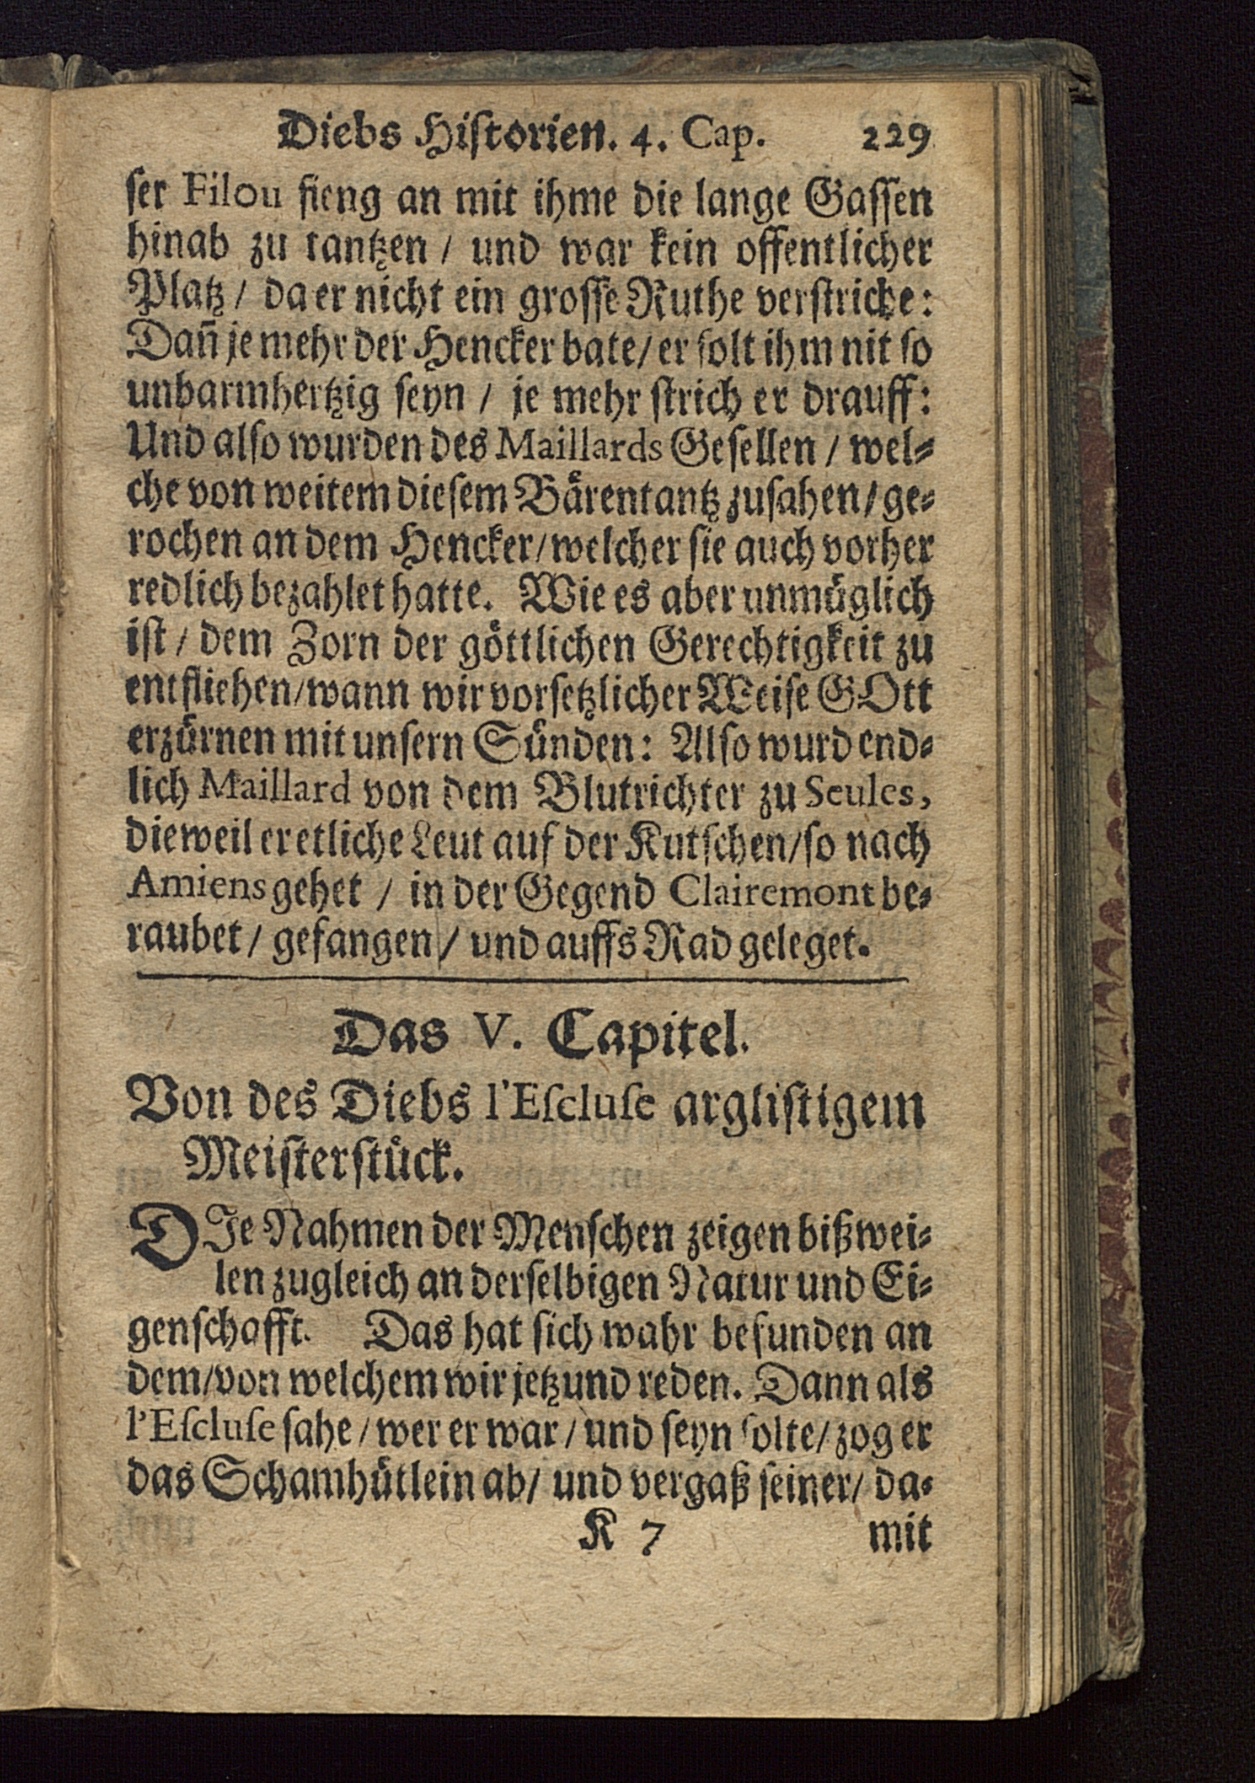 Diebs Historien. 4. Cap. 229
ser Filou fieng an mit ihme die lange Gassen
hinab zu tantzen / und war kein offentlicher
Platz / da er nicht ein grosse Ruthe verstriche:
Dañ je mehr der Hencker bate / er solt ihm nit so
unbarmhertzig seyn / je mehr strich er drauff:
Und also wurden des Maillards Gesellen / wel-
che von weitem diesem Bärentantz zusahen / ge-
rochen an dem Hencker / welcher sie auch vorher
redlich bezahlet hatte. Wie es aber unmüglich
ist / dem Zorn der göttlichen Gerechtigkeit zu
entfliehen / wann wir vorsetzlicher Weise GOtt
erzürnen mit unsern Sünden: Also wurd end-
lich Maillard von dem Blutrichter zu Seules,
dieweil er etliche Leut auf der Kutschen / so nach
Amiens gehet / in der Gegend Clairemont be-
raubet / gefangen / und auffs Rad geleget.
Das V. Capitel.
Von des Diebs l'Escluse arglistigem
Meisterstück.
DIe Nahmen der Menschen zeigen bißwei-
len zugleich an derselbigen Natur und Ei-
genschafft. Das hat sich wahr befunden an
dem / von welchem wir jetzund reden. Dann als
l'Escluse sahe / wer er war / und seyn solte / zog er
das Schamhütlein ab / und vergaß seiner / da-
K 7 mit